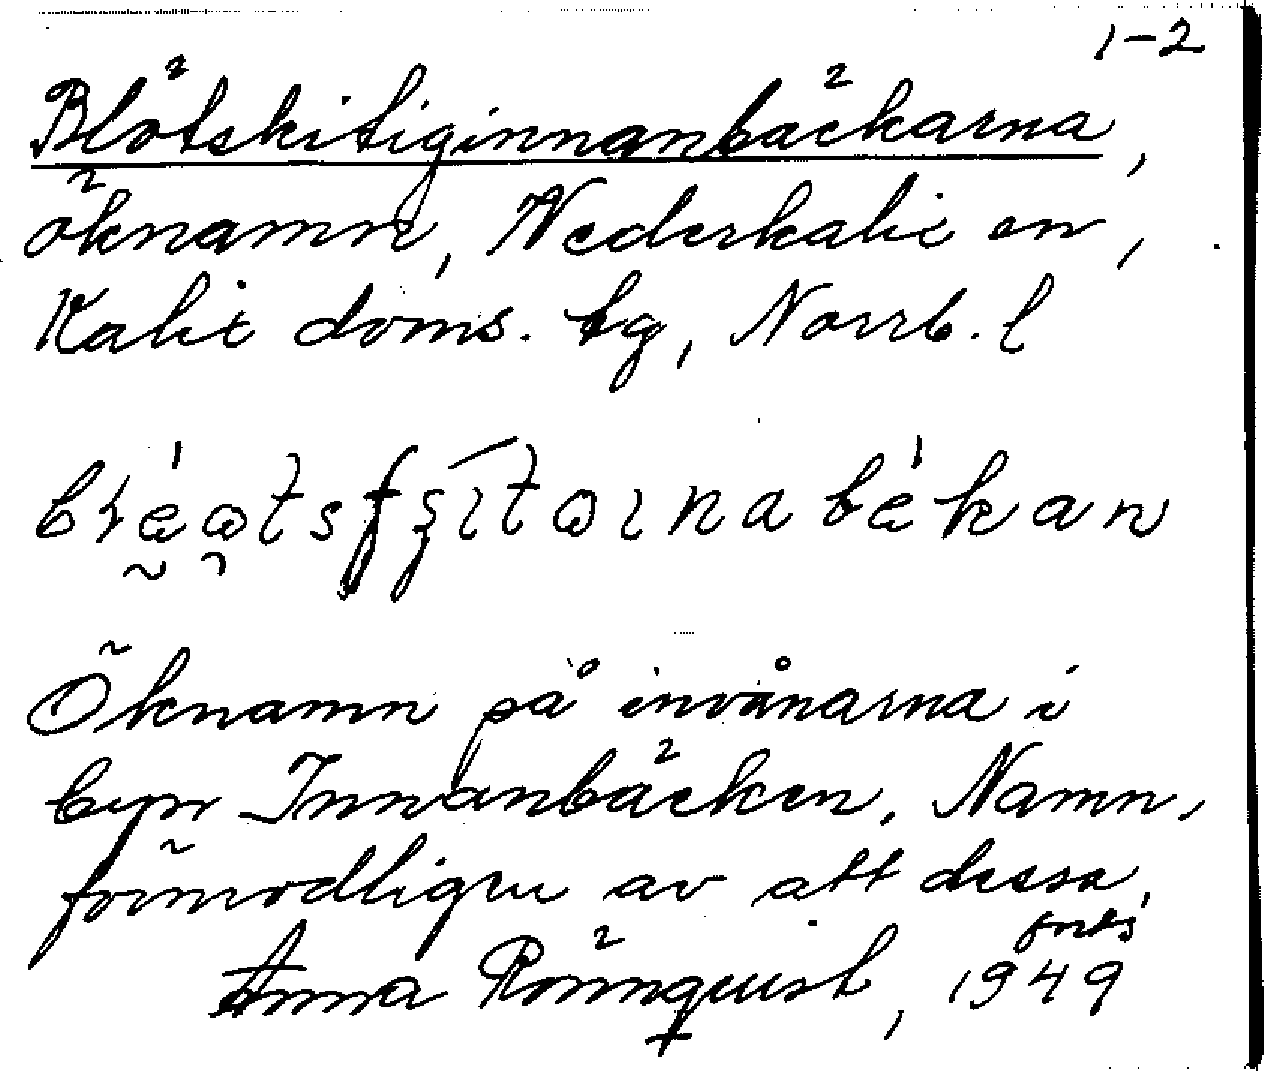 1-2
Blötskitiginnanbäckarna,
öknamn, Nederkalix sn,
Kalix doms. tg, Norrb. l
Öknamn på invånarna i
byn Innanbäcken. Namn,
förmodligen av att dessa,
forts
Anna Rönnqvist, 1949